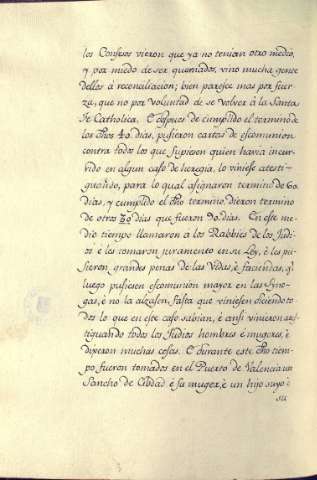 los Confesos vieron que ya no tenian otro medio,
y por miedo de ser quemados, vino mucha gente
dellos à reconciliacion; bien paresce mas por fuer-
za, que no por voluntad de se volver à la Santa
Fè Catholica. E despues de cumplido el termino de
los dhos 40 dias, pusieron cartas de escomunion
contra todos los que supiesen quien havia incur-
rido en algun caso de heregia, lo viniese atesti-
guando, para lo qual asignaron termino de 60.
dias, y cumplido el dho termino, dieron termino
de otros 30 dias que fueron 90. dias. En este me-
dio tiempo llamaron a los Rabbies de los Judi-
os è les tomaron juramento en su Ley, è les pu-
sieron grandes penas de las Vidas, è faciendas, q.
luego pusiesen escomunion mayor en las Syno-
gas, è no la alzasen, fasta que viniesen diciendo to-
dos lo que en este caso sabian, è ansi vinieron ates-
tiguando todos los Judios hombres è mugeres, è
dixeron muchas cosas. E durante este dho tiem-
po fueron tomados en el Puerto de Valencia un
Sancho de Cibdad è su muger, è un hijo suyo è
su